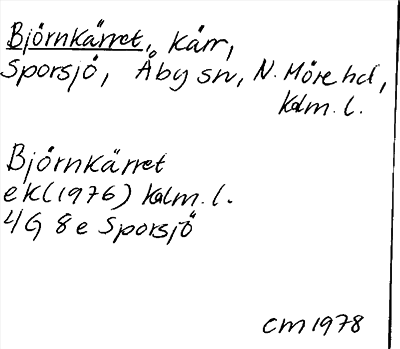 Björnkärret, kärr,
Sporsjö, Åby sn, N. Möre hd,
Kalm. l.
Björnkärret
ek (1976) Kalm. l.
4G 8e Sporsjö
CM 1978